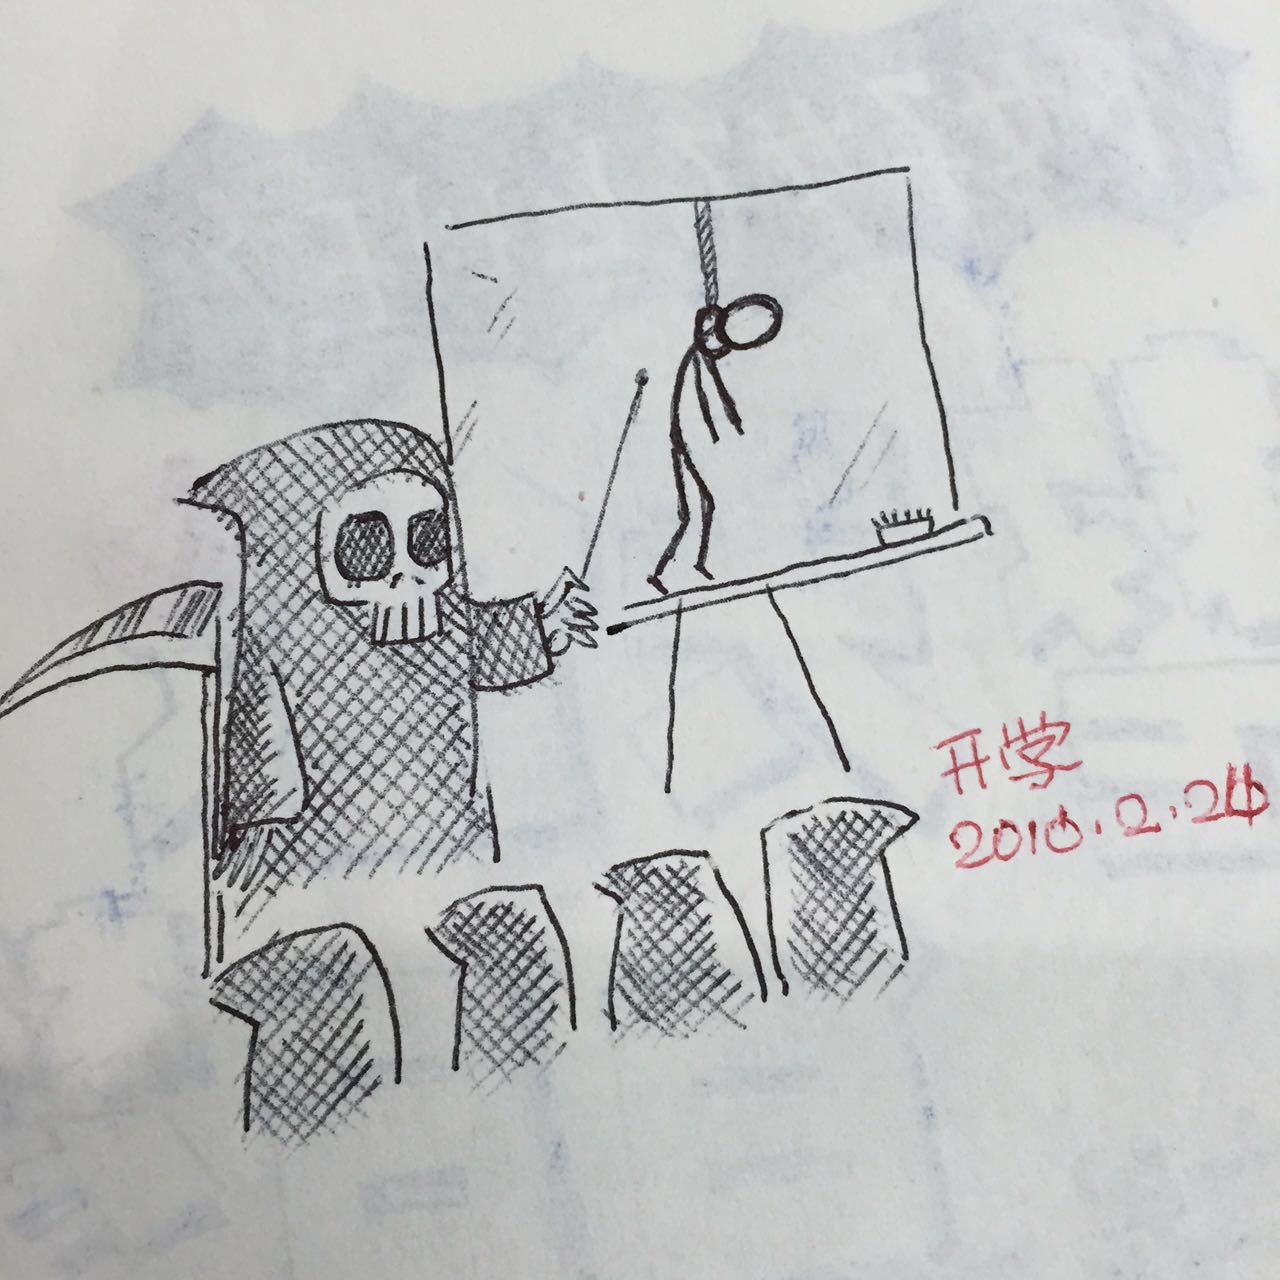 开学
2010.2.24